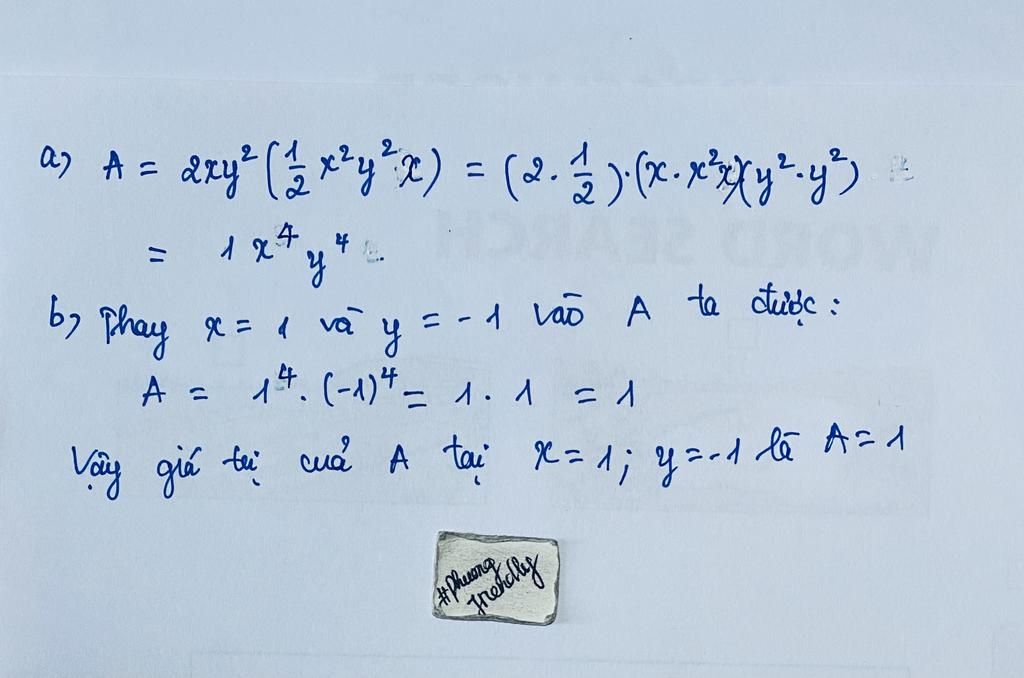 a) A = 2xy² (1/2 x²y²x) = (2 . 1/2).(x.x²x)(y².y²)
= 1x⁴y⁴.
b) Thay x = 1 và y = -1 vào A ta được:
A = 1⁴. (-1)⁴ = 1. 1 = 1
Vậy giá trị cuả A tại x = 1; y = -1 là A = 1
#Phuong
friendly
WORD SEARCH